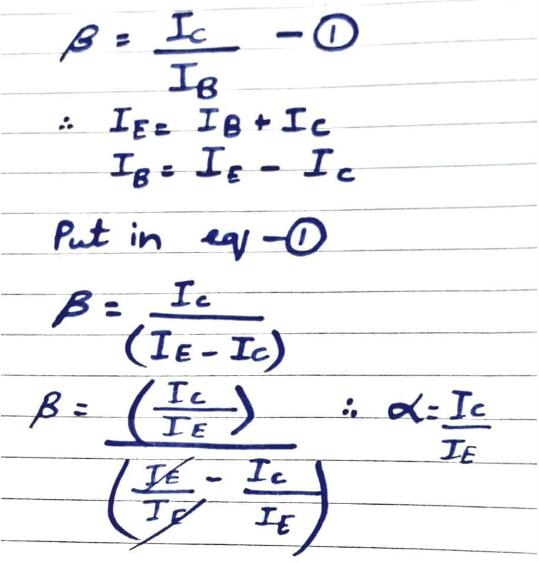 β = I_C / I_B - ①
∴ I_E = I_B + I_C
I_B = I_E - I_C
Put in eq - ①
β = I_C / (I_E - I_C)
β = (I_C / I_E) / (I_E / I_E - I_C / I_E) ∴ α = I_C / I_E